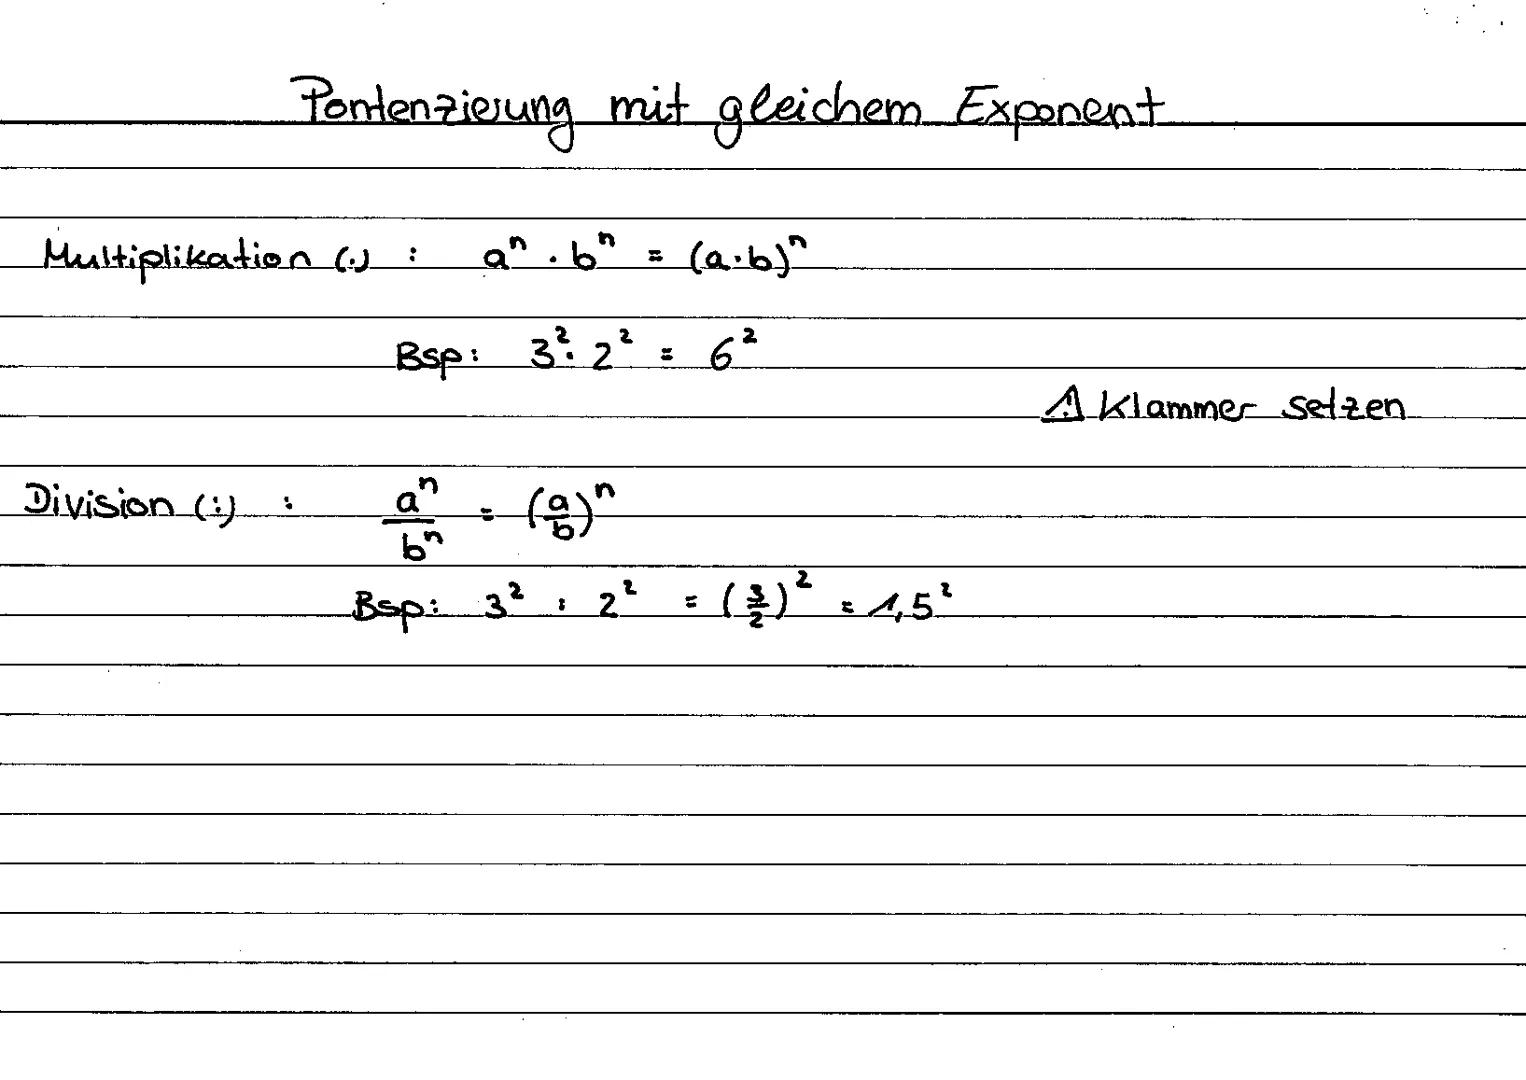 Pontenzierung mit gleichem Exponent
Multiplikation (·) : aⁿ · bⁿ = (a·b)ⁿ
Bsp: 3² · 2² = 6²
⚠ Klammer setzen
Division (:) : aⁿ/bⁿ = (a/b)ⁿ
Bsp: 3² : 2² = (3/2)² = 1,5²